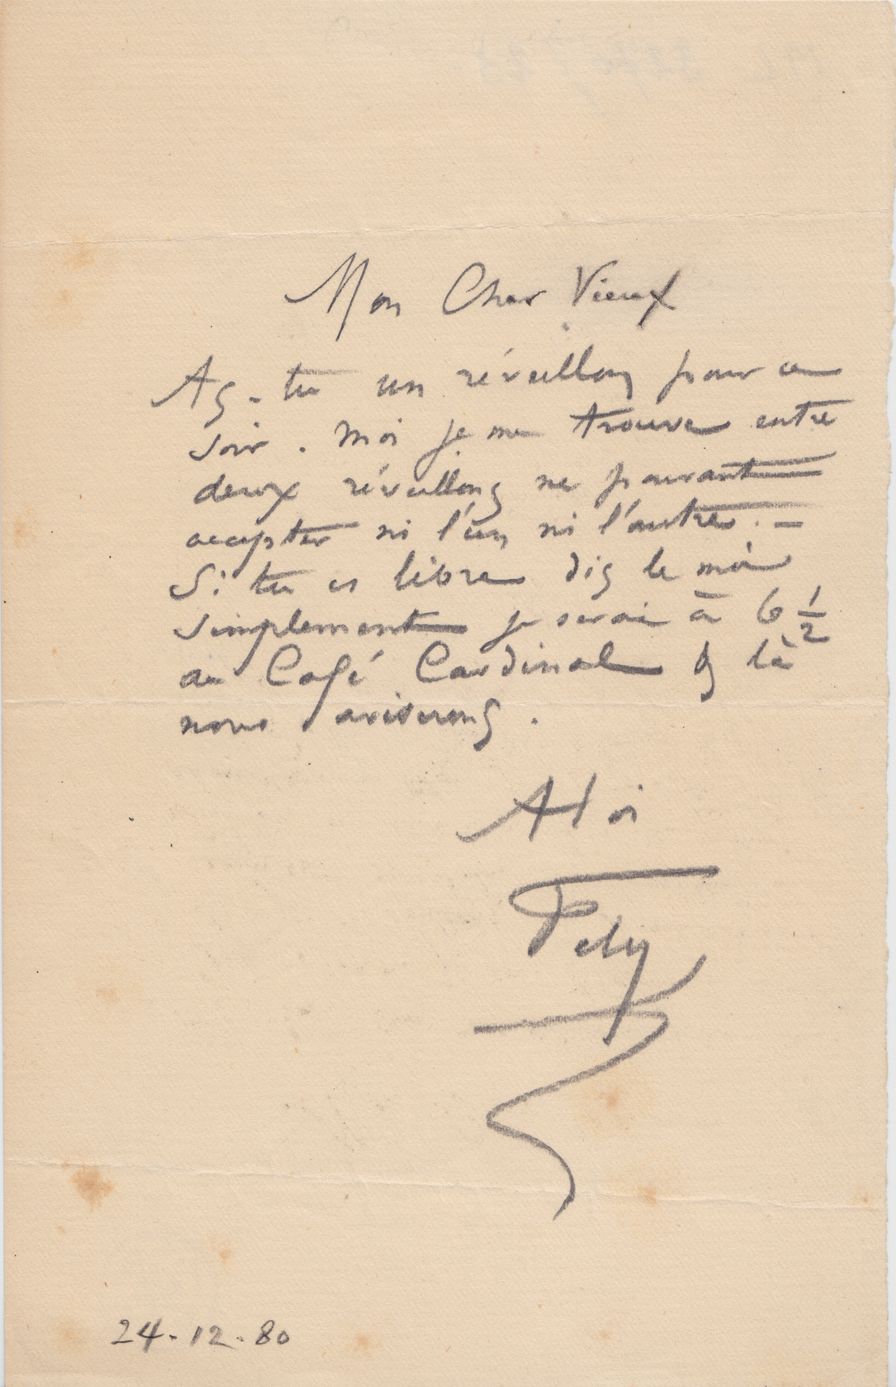 Mon Cher Vieux
As-tu un réveillon pour ce
soir. Moi je me trouve entre
deux réveillons ne pouvant
accepter ni l'un ni l'autre. –
Si tu es libre dis le moi
simplement je serai à 6 1/2
au Café Cardinal & là
nous aviserons.
A toi
Fély
24-12-80